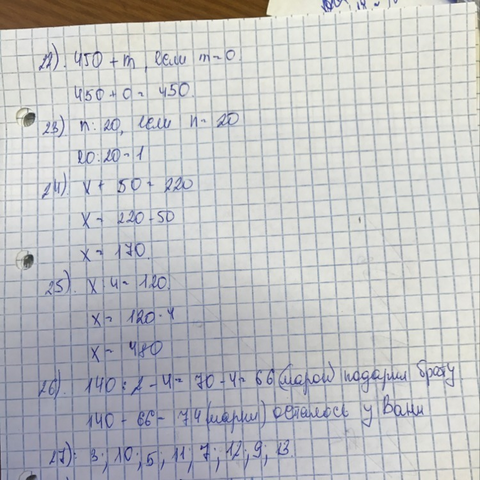 22). 450 + m, если m = 0.
450 + 0 = 450.
23) n : 20, если n = 20
20 : 20 = 1
24) x + 50 = 220
x = 220 - 50
x = 170.
25). x : 4 = 120.
x = 120 · 4
x = 480
26). 140 : 2 - 4 = 70 - 4 = 66 (марок) подарил брату
140 - 66 = 74 (марки) осталось у Вани
27): 3; 10; 5; 11; 7; 12; 9; 13